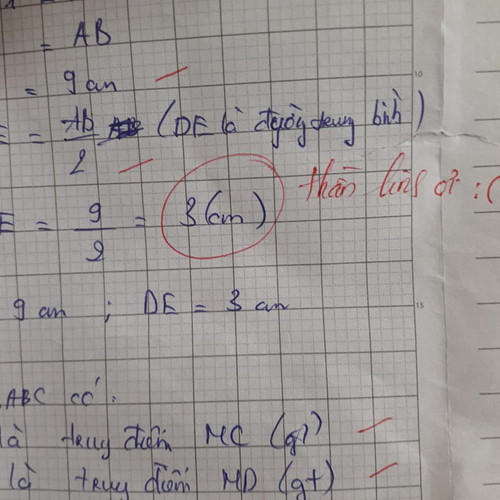 = AB
= 9 cm
10
E = AB/2 (DE là đường trung bình)
E = 9/2 = 3 (cm) thần linh ơi :(
9 cm ; DE = 3 cm
15
ABC có:
là trung điểm MC (gt)
là trung điểm MD (gt)